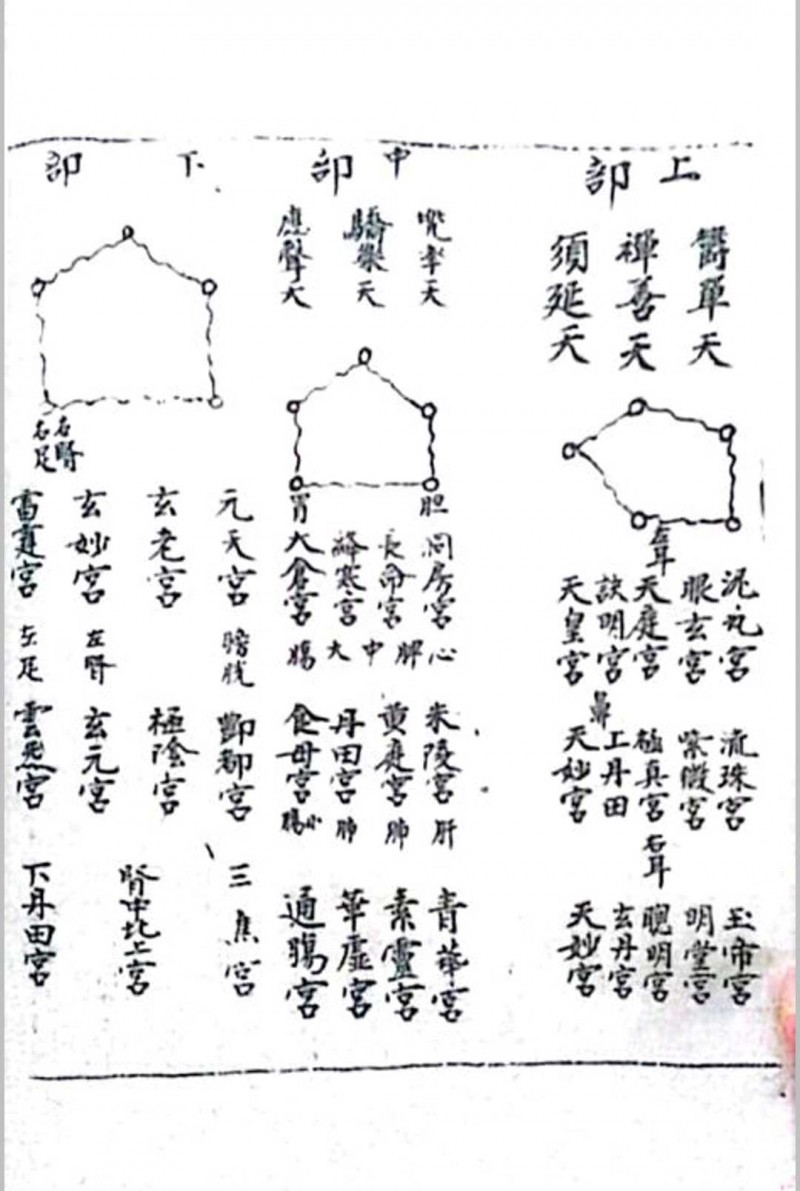 上部
欝單天
禪善天
須延天
泥丸宮
眼玄宮
左耳
天庭宮
訣明宮
天皇宮
流珠宮
紫微宮
極真宮
上丹田
鼻
天妙宮
玉帝宮
明堂宮
右耳
聰明宮
玄丹宮
天妙宮
中部
兜率天
驕樂天
應聲天
胆
洞房宮
長命宮
絳寒宮
胃
大倉宮
心
朱陵宮
脾
黄庭宮
中
丹田宮
大腸
食母宮
肝
青華宮
肺
素靈宮
肺
華虛宮
小腸
通腸宮
下部
元天宮
玄老宮
右腎
玄妙宮
右足
膀胱
酆都宮
極陰宮
左腎
玄元宮
左足
三焦宮
腎中北上宮
下丹田宮